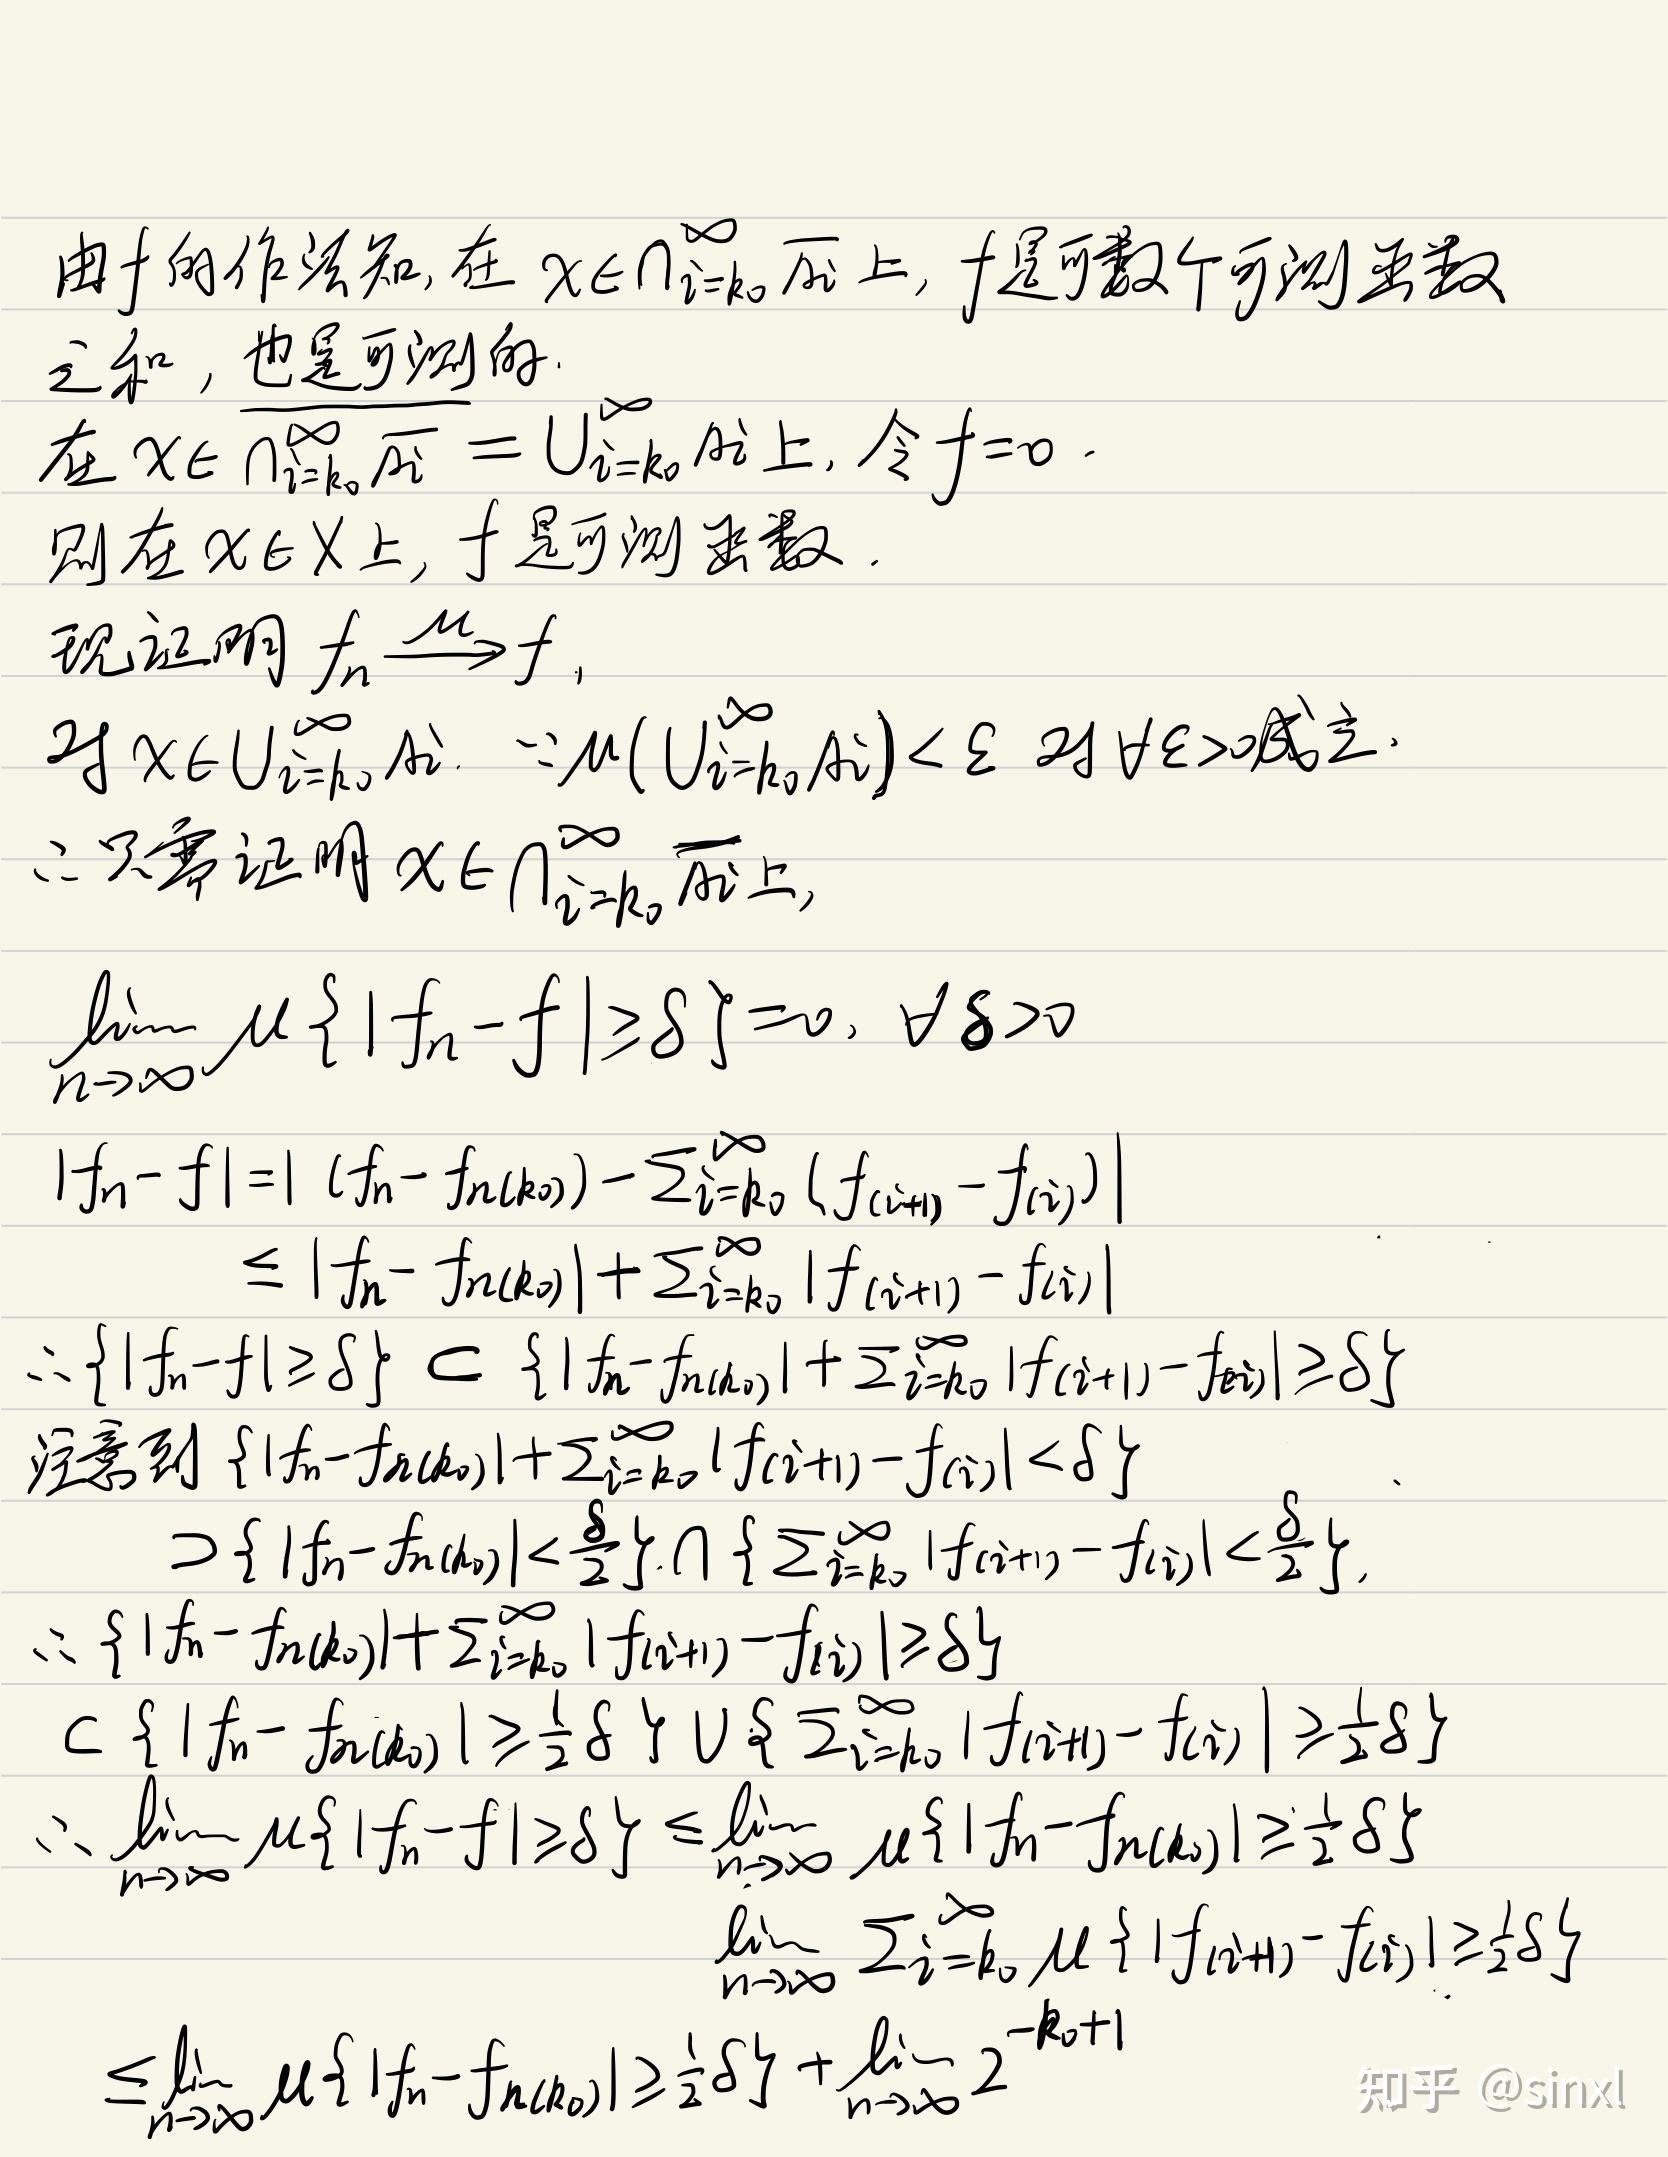 由f的作法知, 在 x∈∩_{i=k₀}^∞ \overline{Ai} 上, f是可数个可测函数
之和, 也是可测的.
在 x∈ \overline{∩_{i=k₀}^∞ \overline{Ai}} = ∪_{i=k₀}^∞ Ai 上, 令 f=0.
则在 x∈X 上, f 是可测函数.
现证明 fₙ \xrightarrow{μ} f,
对 x∈∪_{i=k₀}^∞ Ai. ∵ μ(∪_{i=k₀}^∞ Ai) < ε 对 ∀ε>0成立.
∴ 只需证明 x∈∩_{i=k₀}^∞ \overline{Ai} 上,
lim_{n→∞} μ{|fₙ-f|≥δ}=0, ∀δ>0
|fₙ-f|=|(fₙ-f_{n(k₀)})-∑_{i=k₀}^∞ (f_{(i+1)}-f_{(i)})|
≤ |fₙ-f_{n(k₀)}|+∑_{i=k₀}^∞ |f_{(i+1)}-f_{(i)}|
∴{|fₙ-f|≥δ} ⊂ {|fₙ-f_{n(k₀)}|+∑_{i=k₀}^∞ |f_{(i+1)}-f_{(i)}|≥δ}
注意到 {|fₙ-f_{n(k₀)}|+∑_{i=k₀}^∞ |f_{(i+1)}-f_{(i)}|<δ}
⊃{|fₙ-f_{n(k₀)}|<\frac{δ}{2}}∩{∑_{i=k₀}^∞ |f_{(i+1)}-f_{(i)}|<\frac{δ}{2}},
∴ {|fₙ-f_{n(k₀)}|+∑_{i=k₀}^∞ |f_{(i+1)}-f_{(i)}|≥δ}
⊂ {|fₙ-f_{n(k₀)}|≥\frac{1}{2}δ}∪{∑_{i=k₀}^∞ |f_{(i+1)}-f_{(i)}|≥\frac{1}{2}δ}
∴ lim_{n→∞} μ{|fₙ-f|≥δ} ≤ lim_{n→∞} μ{|fₙ-f_{n(k₀)}|≥\frac{1}{2}δ}
lim_{n→∞} ∑_{i=k₀}^∞ μ{|f_{(i+1)}-f_{(i)}|≥\frac{1}{2}δ}
≤lim_{n→∞} μ{|fₙ-f_{n(k₀)}|≥\frac{1}{2}δ}+lim_{n→∞} 2^{-k₀+1}
知乎 @sinxl